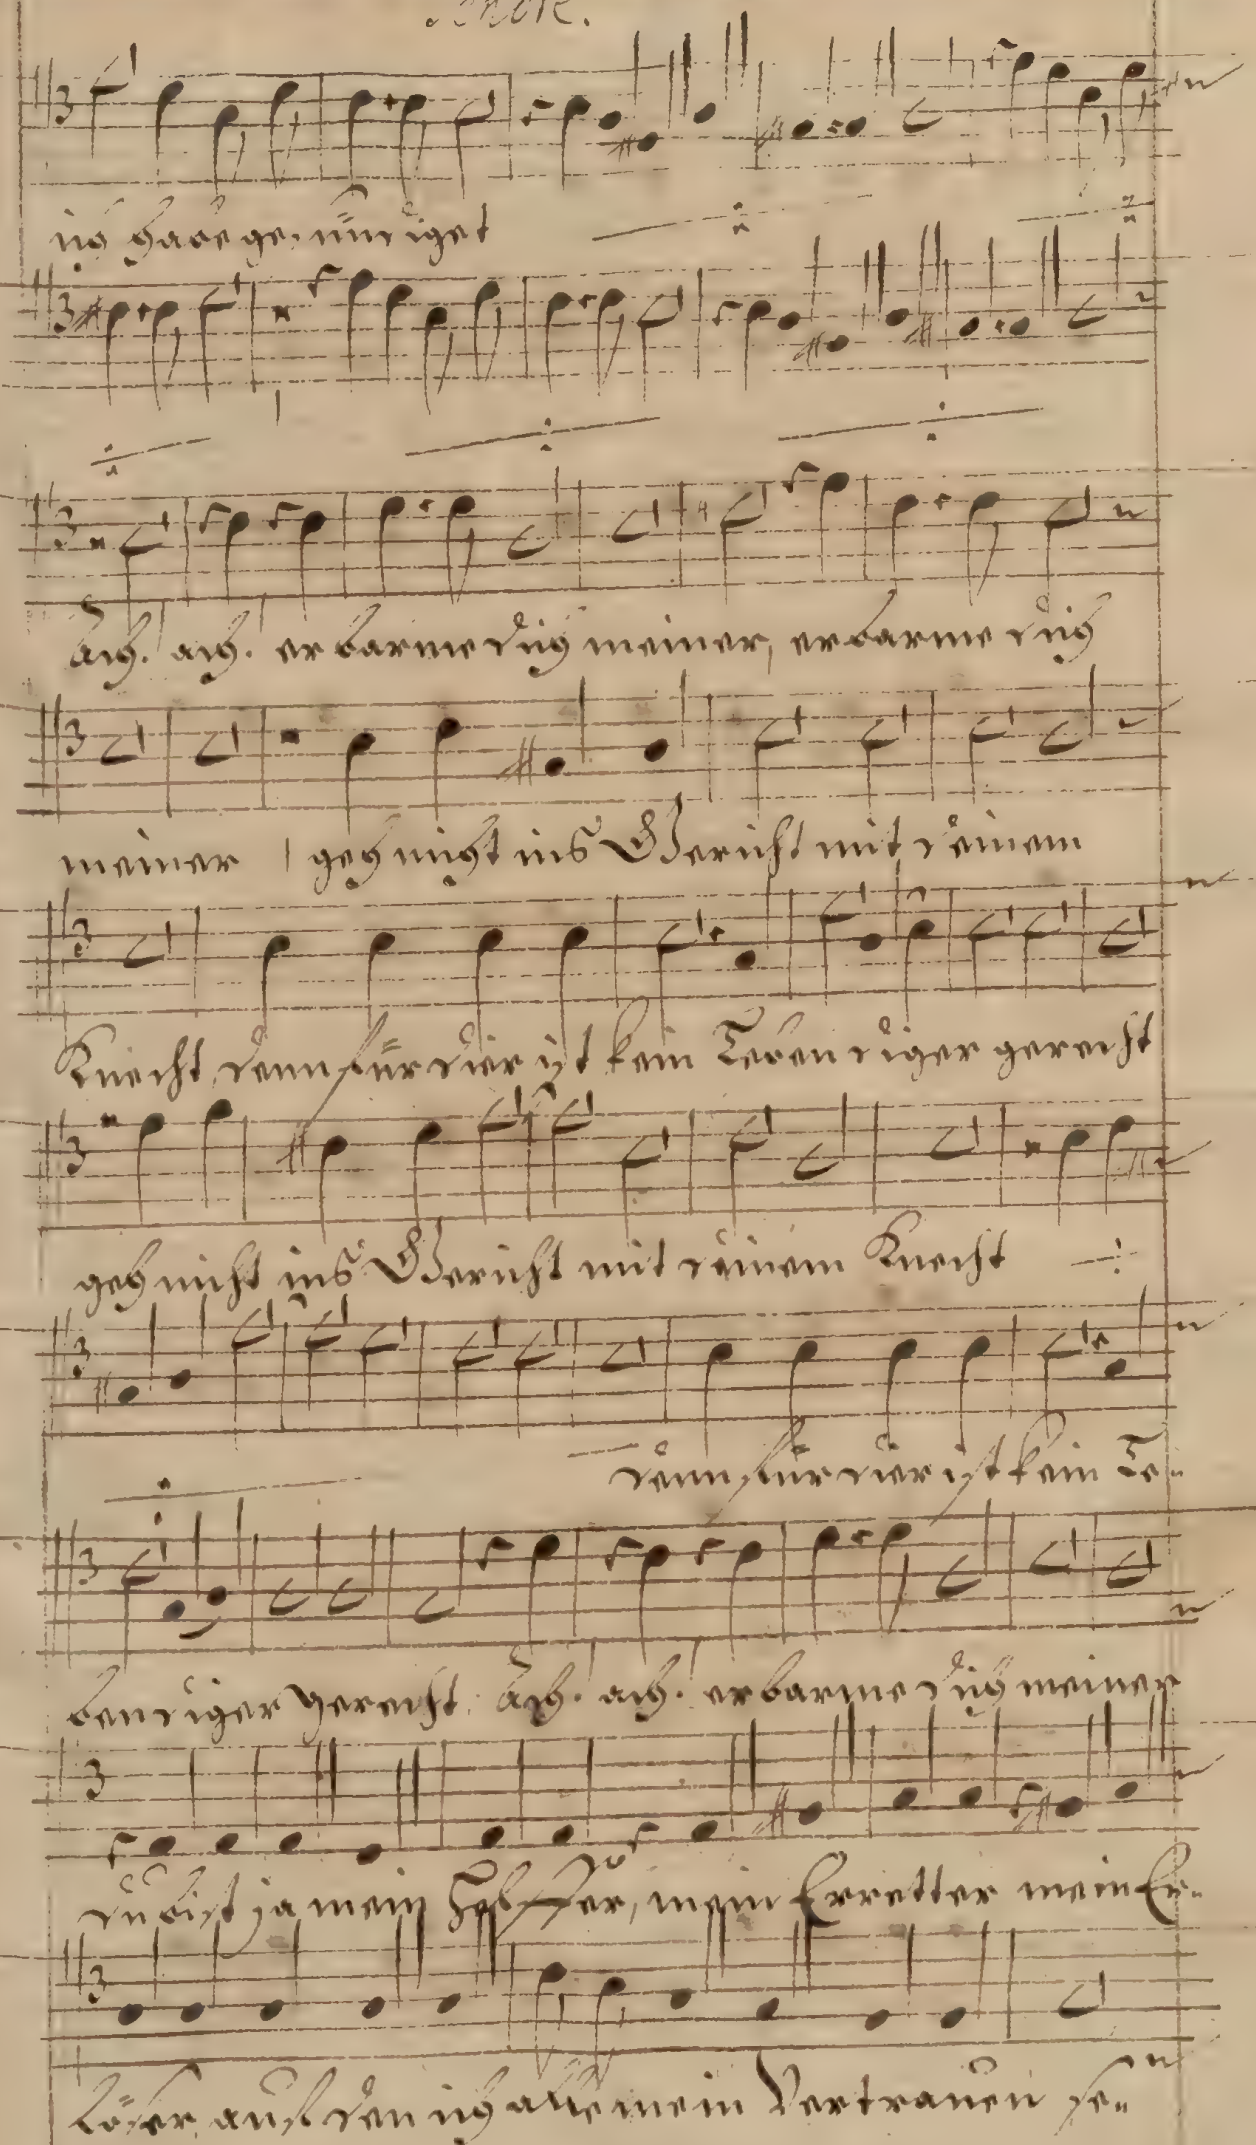 Tenore.
ich habe gesündiget
Ach. ach. erbarme dich meiner, erbarme dich
meiner geh nicht ins Gericht mit deinem
Knecht denn für dier ist kein Lebendiger gerecht
geh nicht ins Gericht mit deinem Knecht
denn für dier ist kein Le-
bendiger gerecht. Ach. ach. erbarme dich meiner
du bist ja mein Helffer, mein Erretter mein Er-
löser auf den ich alle mein Vertrauen se-